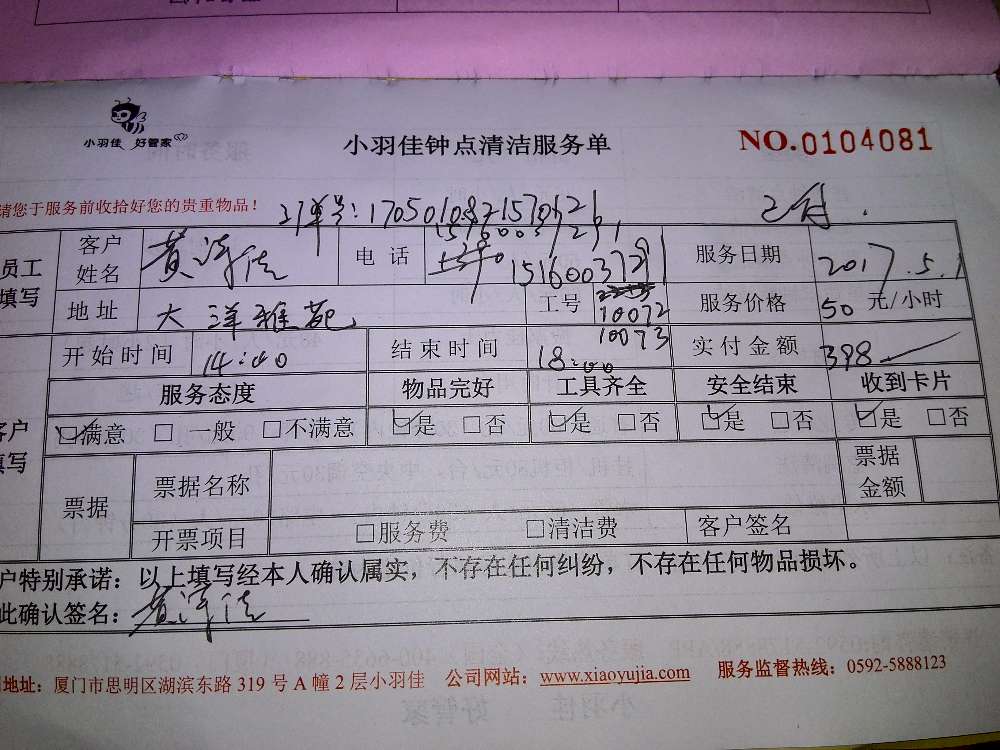 小羽佳 好管家
小羽佳钟点清洁服务单
NO.0104081
请您于服务前收拾好您的贵重物品！
已付.
员工填写 客户姓名 电话 15160037291 服务日期 2017.5.1
地址 大洋雅苑 工号 10072 10073 服务价格 50元/小时
开始时间 14:00 结束时间 18:00 实付金额 398
服务态度 物品完好 工具齐全 安全结束 收到卡片
客户填写 ☑满意 □一般 □不满意 ☑是 □否 ☑是 □否 ☑是 □否 ☑是 □否
票据 票据名称 票据金额
开票项目 □服务费 □清洁费 客户签名
户特别承诺：以上填写经本人确认属实，不存在任何纠纷，不存在任何物品损坏。
此确认签名：
地址：厦门市思明区湖滨东路 319 号 A 幢 2 层小羽佳 公司网站：www.xiaoyujia.com 服务监督热线：0592-5888123